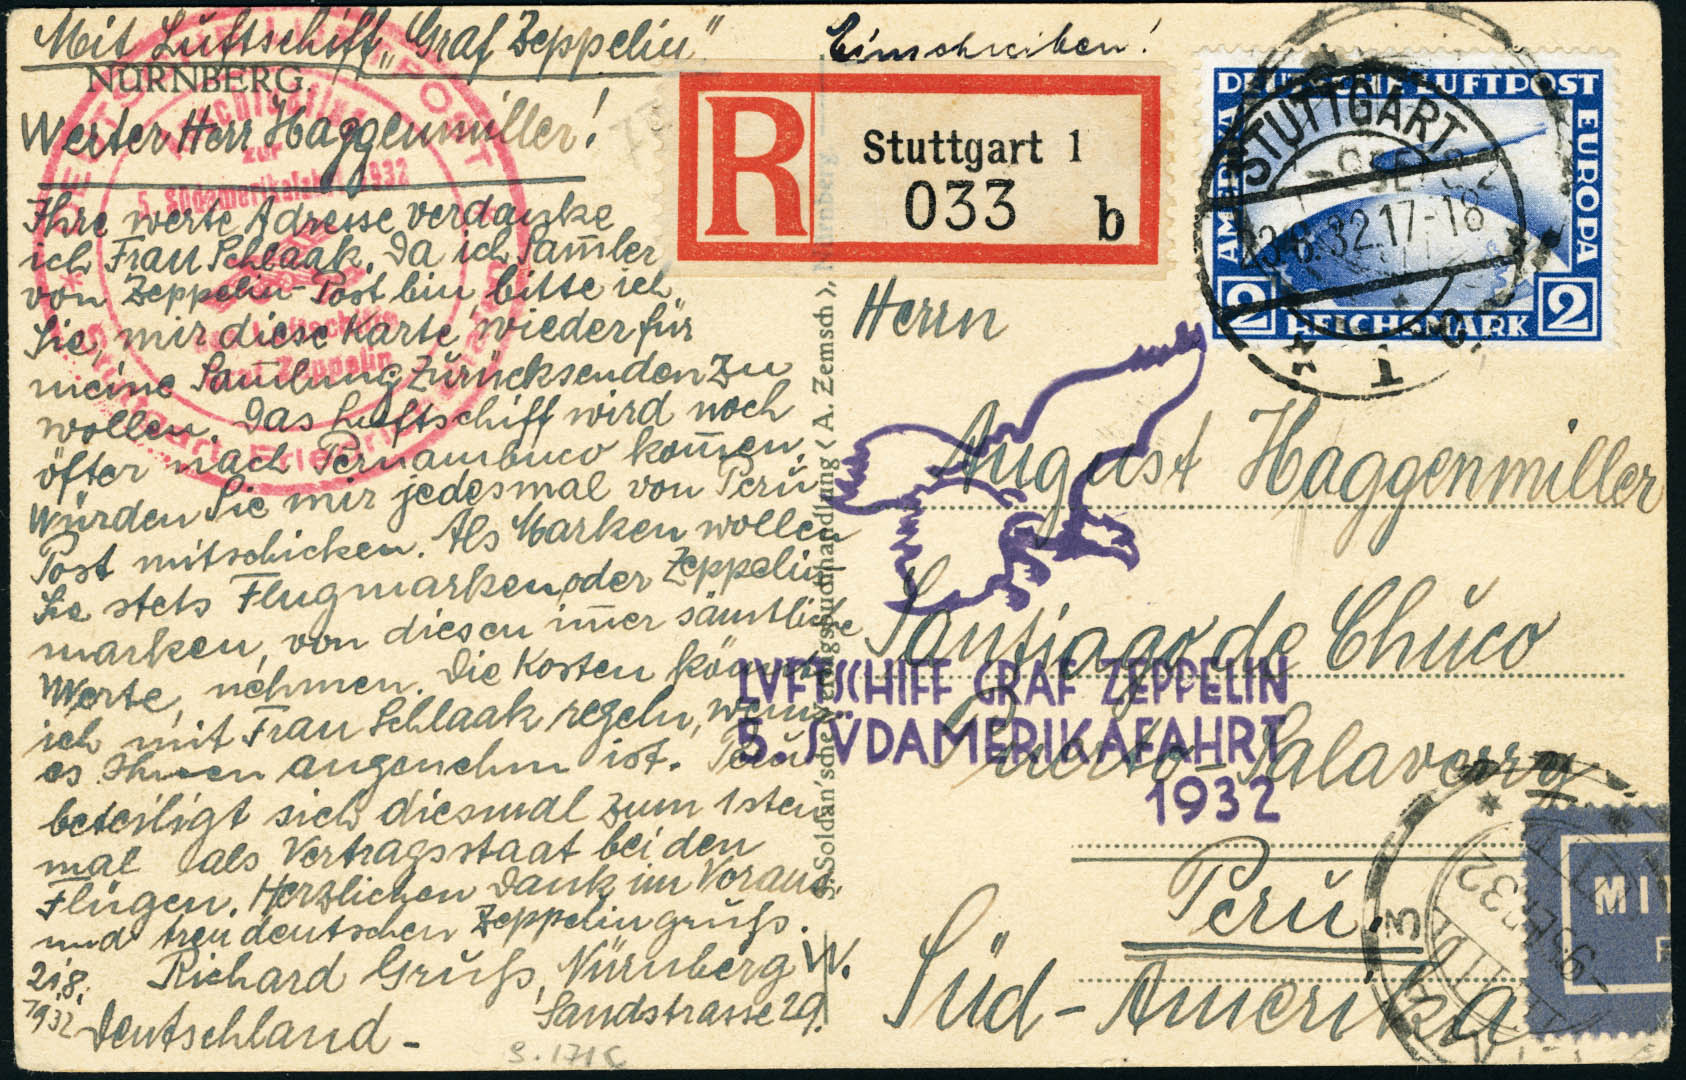 Mit Luftschiff „Graf Zeppelin"
NÜRNBERG.
Werter Herr Haggenmiller!
Ihre werte Adresse verdanke
ich Frau Schlaak. Da ich Sam̅ler
von Zeppelin-Post bin, bitte ich
Sie mir diese Karte wieder für
meine Sam̅lung Zurücksenden zu
wollen. Das Luftschiff wird noch
öfter nach Pernambuco kom̅en.
Würden Sie mir jedesmal von Perú
Post mitschicken. Als Marken wollen
Sie stets Flugmarken, oder Zeppelin
marken, von diesen im̅er sämtliche
Werte, nehmen. Die Kosten könnte
ich mit Frau Schlaak regeln, wenn
es Ihnen angenehm ist. Perú
beteiligt sich diesmal zum 1sten
mal als Vertragsstaat bei den
Flügen. Herzlichen Dank im Voraus.
und treudeutschen Zeppelingruß.
Richard Gruß, Nürnberg W.
21.8.
1932
Sandstrasse 29.
Deutschland -
S. 171 C
DEUTSCHE LUFTPOST
zur
5. Südamerikafahrt 1932
Graf Zeppelin
Stuttgart
S. Soldan'sche Verlagsbuchhandlung (A. Zemsch), Nürnberg
Einschreiben!
R
Stuttgart 1
033
b
DEUTSCHE LUFTPOST
AMERIKA
EUROPA
2 REICHSMARK 2
STUTTGART
23.8.32.17-18
1
Herrn
August Haggenmiller
Santiago de Chuco
Puerto-Salaverry
Perú.
Süd-Amerika
LUFTSCHIFF GRAF ZEPPELIN
5. SÜDAMERIKAFAHRT
1932
MI